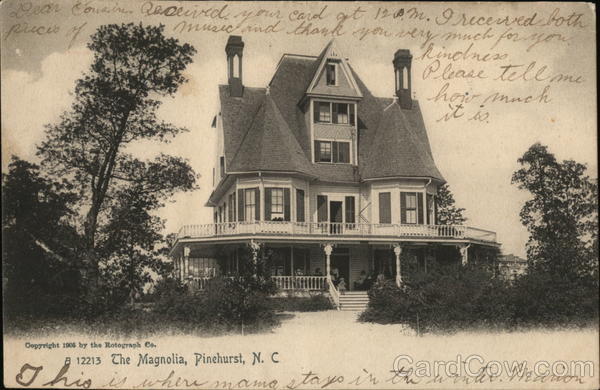 Dear Cousin Received your card at 12 P.M. I received both
pieces of music and thank you very much for your
kindness.
Please tell me
how much
it is.
Copyright 1905 by the Rotograph Co.
A 12213 The Magnolia, Pinehurst, N. C
This is where mama stays in the winter.
CardCow.com